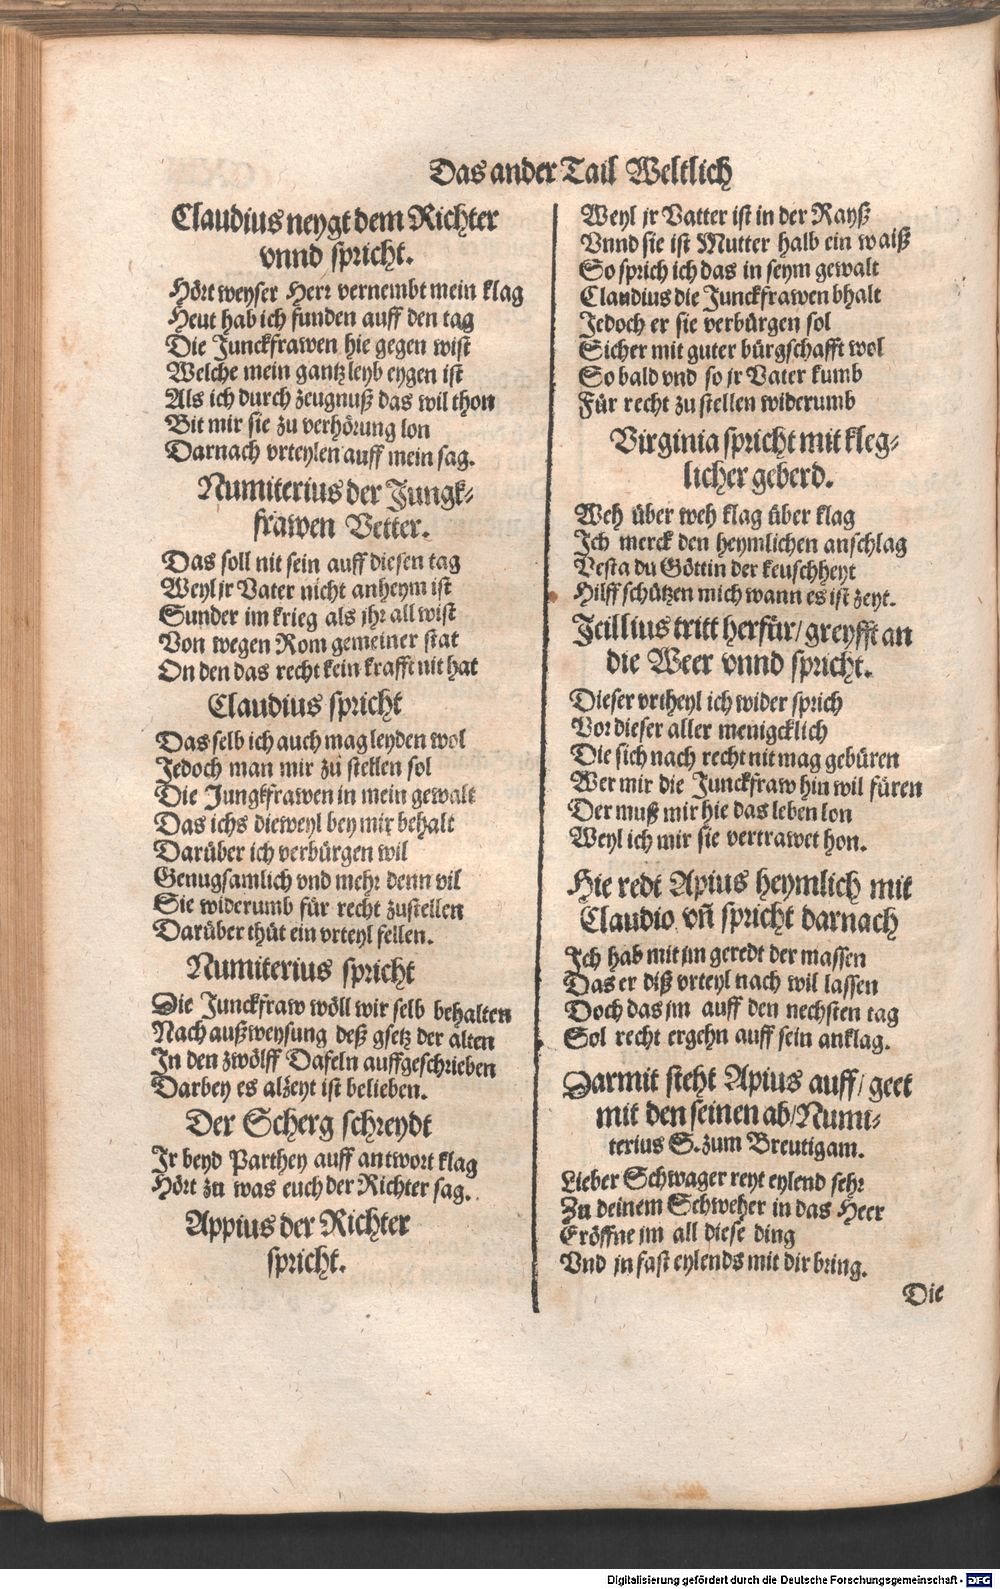 Das ander Tail Weltlich
Claudius neygt dem Richter
vnnd spricht.
Hört weyser Herr vernembt mein klag
Heut hab ich funden auff den tag
Die Junckfrawen hie gegen wist
Welche mein gantz leyb eygen ist
Als ich durch zeugnuß das wil thon
Bit mir sie zu verhörung lon
Darnach vrteylen auff mein sag.
Numiterius der Jungk-
frawen Vetter.
Das soll nit sein auff diesen tag
Weyl jr Vater nicht anheym ist
Sunder im krieg als jhr all wist
Von wegen Rom gemeiner stat
On den das recht kein krafft nit hat
Claudius spricht
Das selb ich auch mag leyden wol
Jedoch man mir zu stellen sol
Die Jungkfrawen in mein gewalt
Das ichs dieweyl bey mir behalt
Darüber ich verbürgen wil
Genugsamlich vnd mehr denn vil
Sie widerumb für recht zustellen
Darüber thut ein vrteyl fellen.
Numiterius spricht
Die Junckfraw wöll wir selb behalten
Nach außweysung deß gsetz der alten
In den zwölff Dafeln auffgeschrieben
Darbey es alzeyt ist belieben.
Der Scherg schreydt
Ir beyd Parthey auff antwort klag
Hört zu was euch der Richter sag.
Appius der Richter
spricht.
Weyl jr Vatter ist in der Rayß
Vnnd sie ist Mutter halb ein waiß
So sprich ich das in seym gewalt
Claudius die Junckfrawen bhalt
Jedoch er sie verbürgen sol
Sicher mit guter bürgschafft wol
So bald vnd so jr Vater kumb
Für recht zu stellen widerumb
Virginia spricht mit kleg-
licher geberd.
Weh über weh klag über klag
Ich merck den heymlichen anschlag
Vesta du Göttin der keuschheyt
Hilff schützen mich wann es ist zeyt.
Icillius tritt herfür/ greyfft an
die Weer vnnd spricht.
Dieser vrtheyl ich wider sprich
Vor dieser aller menigcklich
Die sich nach recht nit mag gebüren
Wer mir die Junckfraw hin wil füren
Der muß mir hie das leben lon
Weyl ich mir sie vertrawet hon.
Hie redt Apius heymlich mit
Claudio vñ spricht darnach
Ich hab mit jm geredt der massen
Das er diß vrteyl nach wil lassen
Doch das jm auff den nechsten tag
Sol recht ergehn auff sein anklag.
Darmit steht Apius auff/ geet
mit den seinen ab/ Numi-
terius S. zum Breutigam.
Lieber Schwager reyt eylend sehr
Zu deinem Schweher in das Heer
Eröffne jm all diese ding
Vnd jn fast eylends mit dir bring.
Die
Digitalisierung gefördert durch die Deutsche Forschungsgemeinschaft - DFG